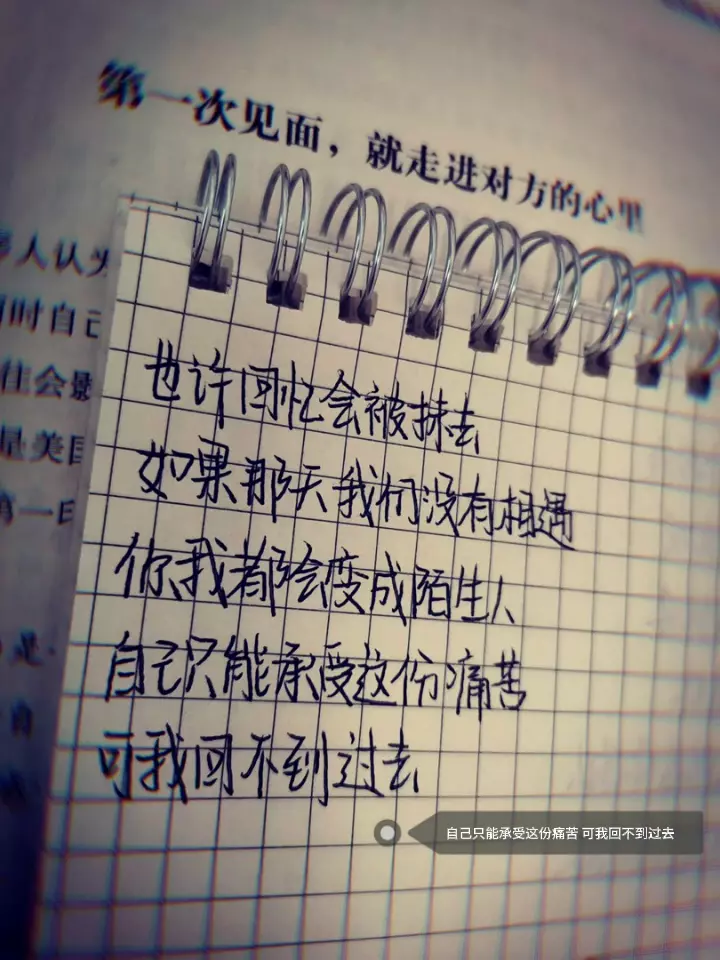 第一次见面，就走进对方的心里
人认为
时自己
往会影
是美国
第一日
也许回忆会被抹去
如果那天我们没有相遇
你我都会变成陌生人
自己只能承受这份痛苦
可我回不到过去
自己只能承受这份痛苦 可我回不到过去